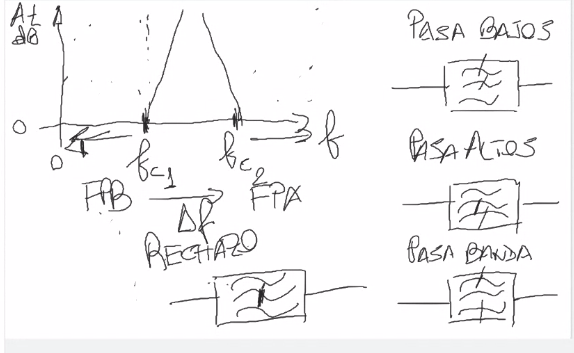 At
dB
0
0
fc1
fc2
f
FPB
Δf
FPA
RECHAZO
PASA BAJOS
PASA ALTOS
PASA BANDA